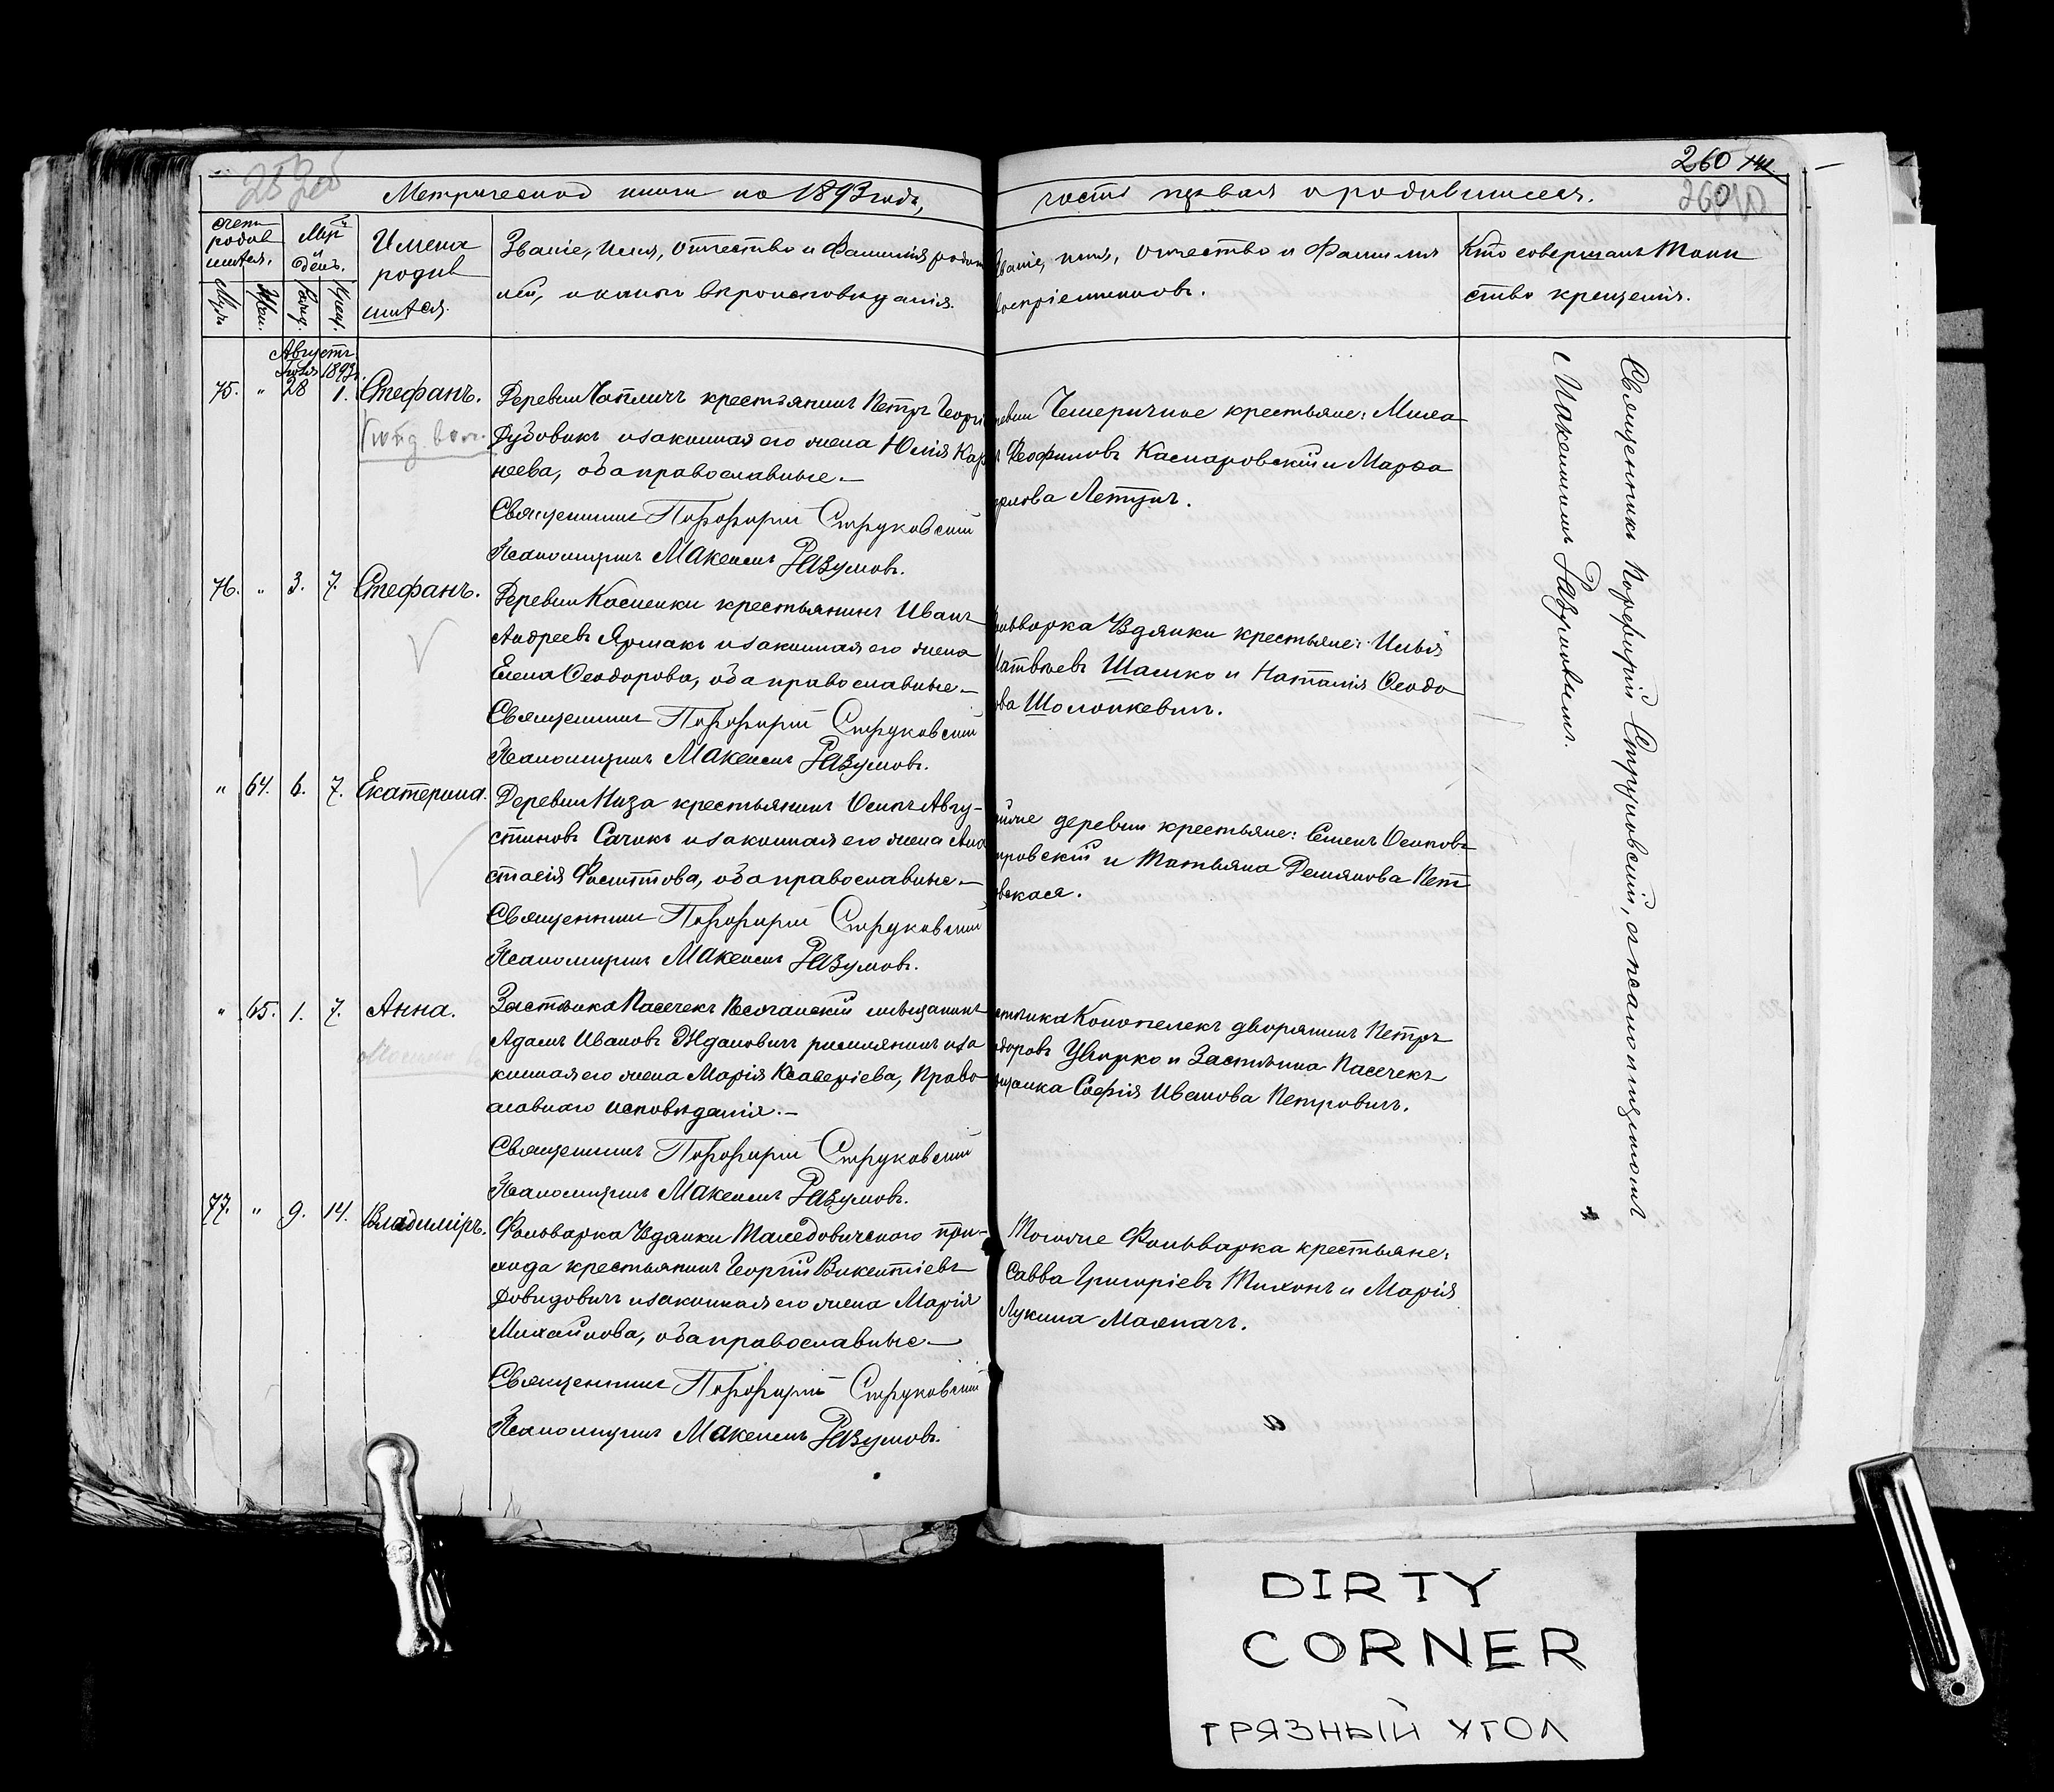 260
Метрической книги на 1893 годъ,
часть первая о родившихся.
счетъ родив шихся.
Мцъ и день.
Имена родив шихся.
Званіе, имя, отчество и фамилія родит
лей, и какого вѣроисповѣданія.
Званіе, имя, отчество и фамилія
воспріемниковъ.
Кто совершалъ Таин
ство крещенія.
Муж. Жен. Рожд. Крещ.
Августъ
Іюля 1893 г.
75. " 28 1. Стефанъ.
Деревни крестьянинъ Петръ Георгі
Дубовикъ и законная его жена Юлія Кар
нѣева, оба православные.—
Священникъ Порфирій Струковскій
Псаломщикъ Максимъ Разумовъ.
ревни крестьяне: Миха
Феофиловъ Касперовскій и Марѳа
Летунъ.
76. " 3. 7. Стефанъ.
Деревни Касценки крестьянинъ Иванъ
Андреевъ Ярмакъ и законная его жена
Елена Ѳеодорова, оба православные.—
Священникъ Порфирій Струковскій
Псаломщикъ Максимъ Разумовъ.
ольварка Удянки крестьяне: Илья
Матвѣевъ Шашко и Наталія Ѳеодо
ова Шолопкевичъ.
" 64. 6. 7. Екатерина.
Деревни Низа крестьянинъ Осипъ Авгу-
стиновъ Сачикъ и законная его жена Ана
стасія оба православные.—
Священникъ Порфирій Струковскій
Псаломщикъ Максимъ Разумовъ.
деревни крестьяне: Семенъ Осиповъ
тровскій и Татьяна Демянова Пет
овская.
" 65. 1. 7. Анна.
Застѣнка Пасечекъ мѣщанинъ
Адамъ Ивановъ Ждановичъ римлянинъ и за
конная его жена Марія Ксаверіева, Право
славнаго исповѣданія.—
Священникъ Порфирій Струковскій
Псаломщикъ Максимъ Разумовъ.
стѣнка Конопелекъ дворянинъ Петръ
одоровъ и Застѣнка Пасечекъ
щанка Софія Иванова Петровичъ.
77. " 9. 14. Владиміръ.
Фольварка Удянки при-
хода крестьянинъ Георгій Викентіевъ
Довидовичъ и законная его жена Марія
Михайлова, оба православные.—
Священникъ Порфирій Струковскій
Псаломщикъ Максимъ Разумовъ.
Тогоже Фольварка крестьяне:
Савва Григоріевъ Тихонъ и Марія
Лукина
Священникъ Порфирій Струковскій, съ псаломщикомъ
Максимомъ Разумовымъ.
DIRTY
CORNER
ГРЯЗНЫЙ УГОЛ